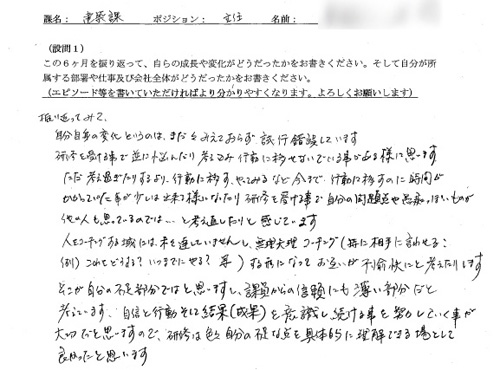 課名： 塗装課 ポジション： 主任 名前：
（設問１）
この６ヶ月を振り返って、自らの成長や変化がどうだったかをお書きください。そして自分が所
属する部署や仕事及び会社全体がどうだったかをお書きください。
（エピソード等を書いていただければより分かりやすくなります。よろしくお願いします）
振り返ってみて、
自分自身の変化というのは、まだ みえておらず 試行錯誤しています
研修を受ける事で逆に 考え込み 行動に移せないでいる事がある様に思います
ただ考え過ぎたりするより、行動に移す、やってみるなど 今まで 行動に移すのに時間が
かかっていた事が少しは出来る様になったり 研修を受ける事で自分の問題点や
他の人も思っているのでは…と考え直したりと感じています
人をコーチングする域には、まだ達していませんし、無理矢理コーチング（特に相手に言わせる：
（例）これはどうする？いつまでにやる？等）する事によって お互いが不愉快にと考えたりします
そこが自分の不足部分ではと思いますし、課員からの信頼にも薄い部分だと
考えています、自信と行動そして結果（成果）を意識し続ける事を努力していく事が
大切だと思いますので、研修は色々自分の不足な点を具体的に理解できる場として
良かったと思います